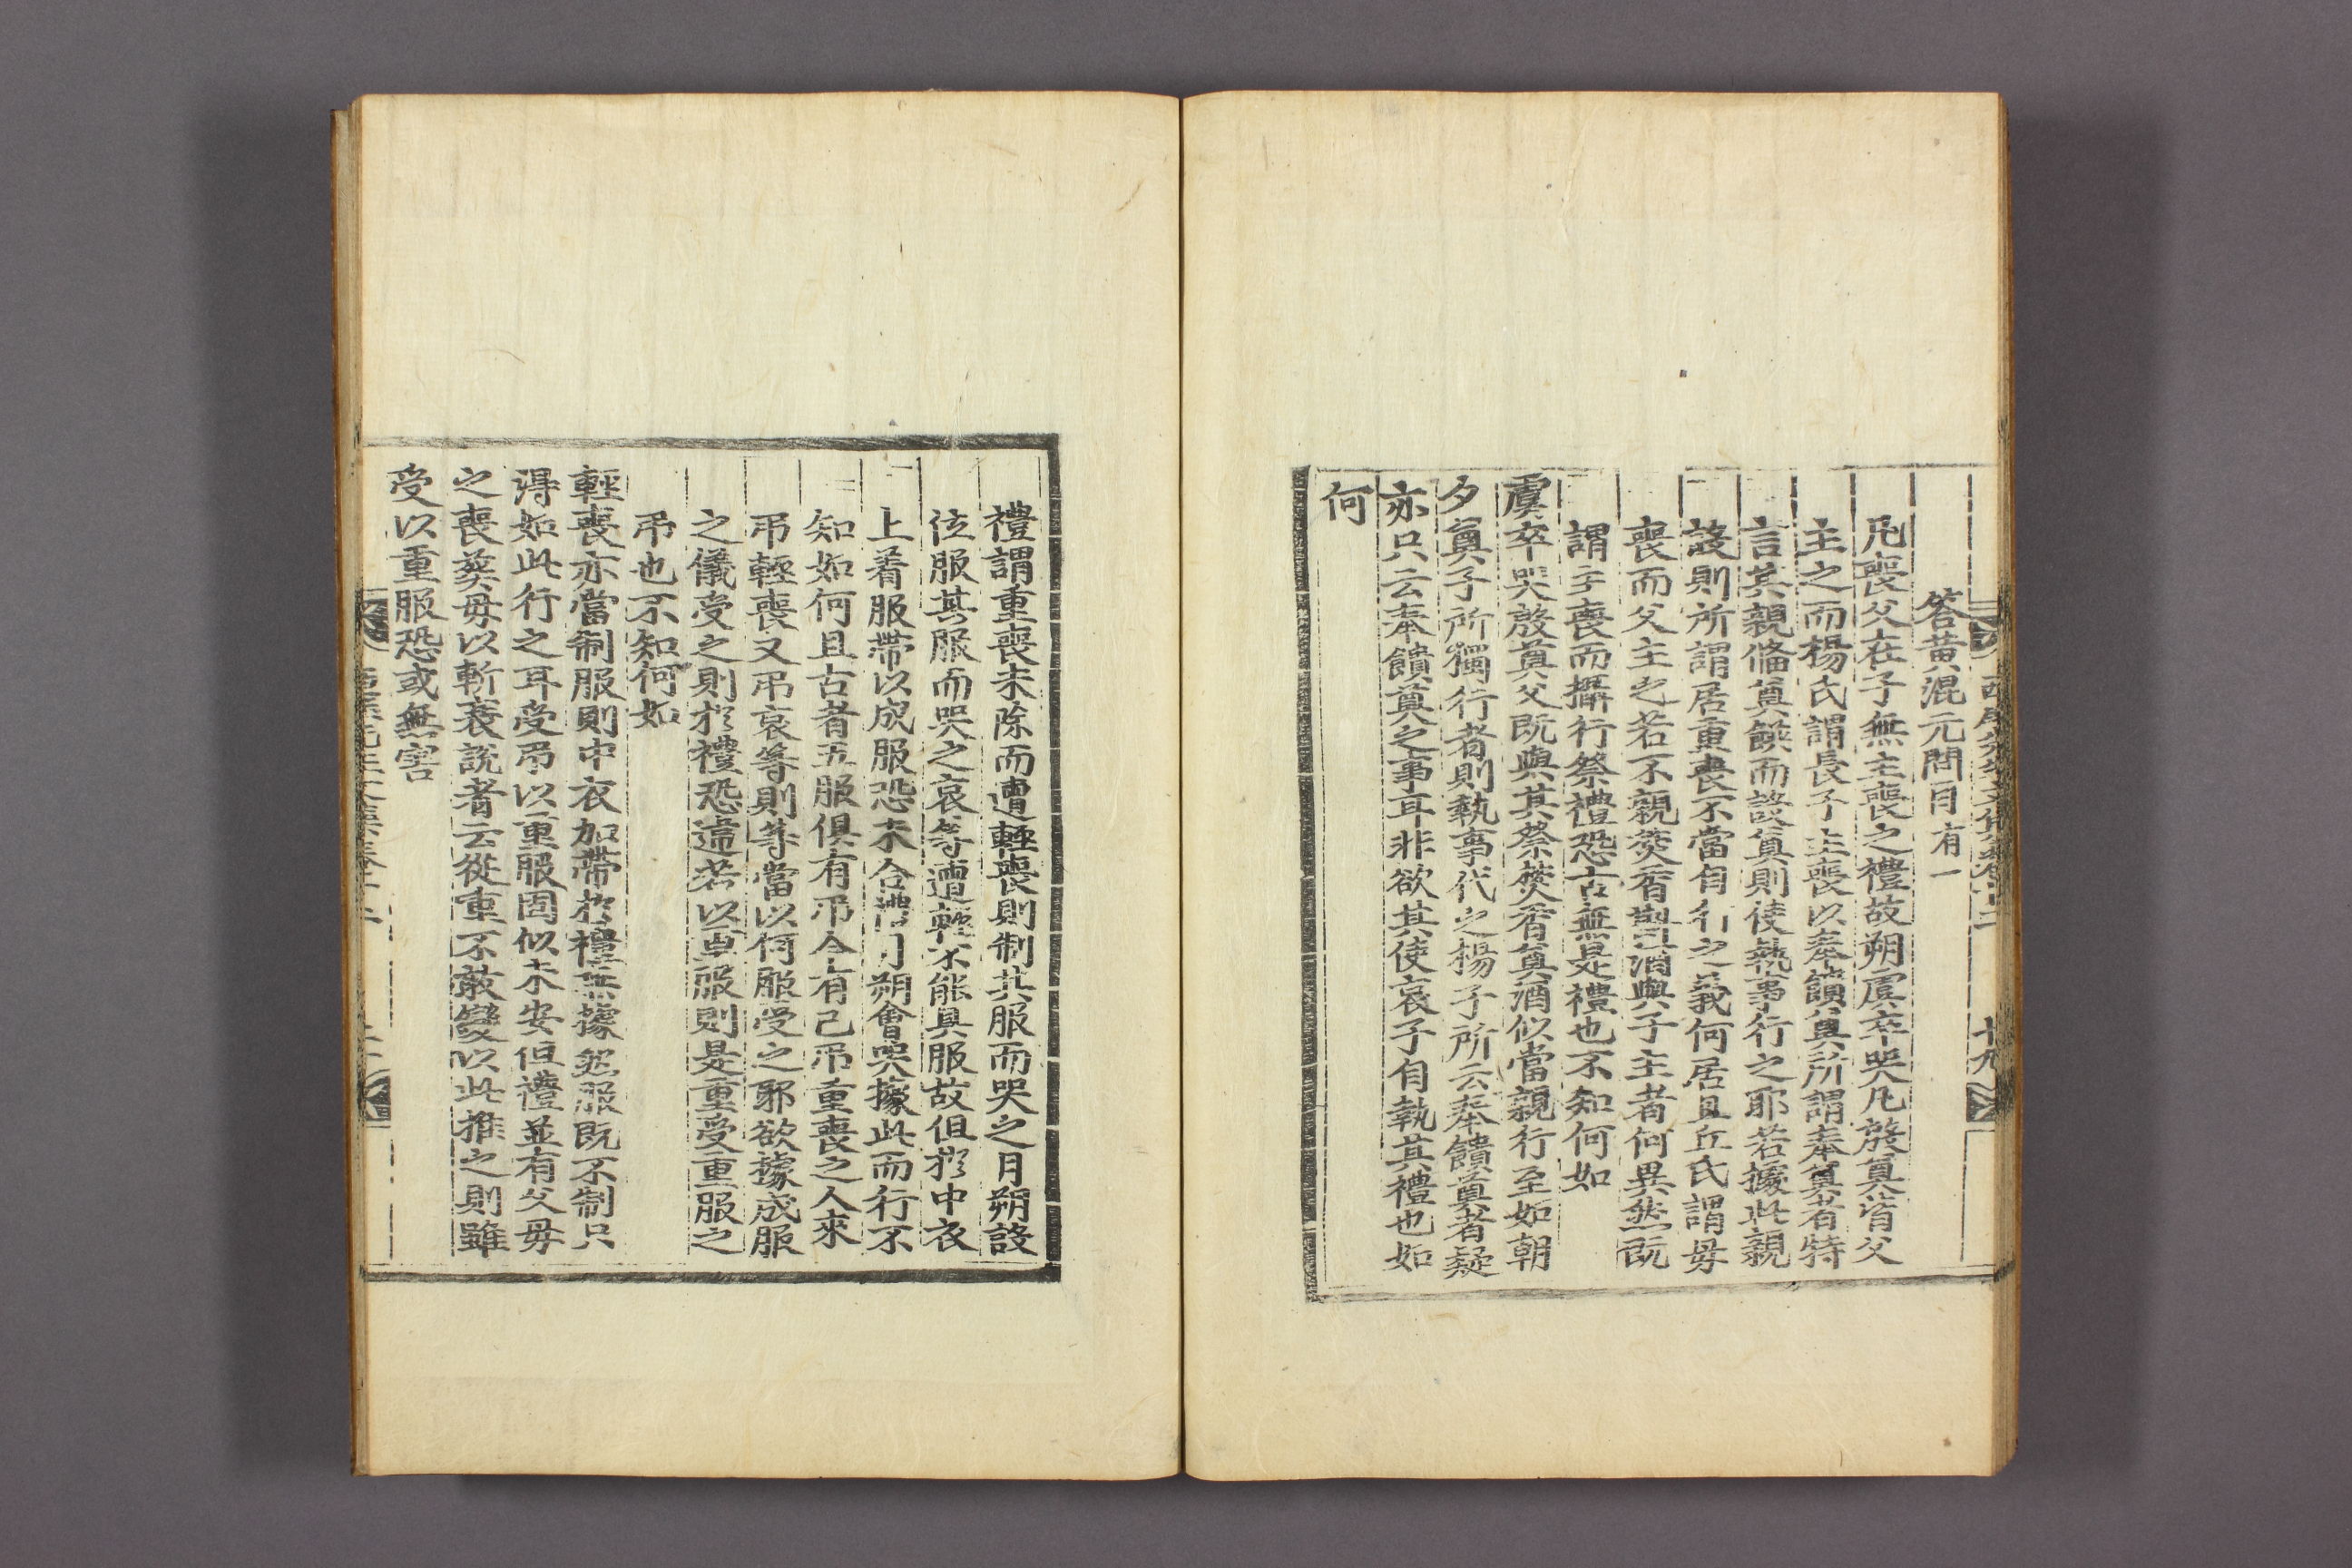 答黃混元問目有一
凡喪父在子無主喪之禮故朔虞卒哭凡殷奠皆父
主之而楊氏謂長子主喪以奉饋奠所謂奉奠者特
言其親偹奠饌而設奠則使執事行之耶若據此親
設則所謂居重喪不當自行之義何居且丘氏謂毋
喪而父主之若不親焚香斟酒與子主者何異然旣
謂主喪而攝行祭禮恐古無是禮也不知何如
虞卒哭殷奠父旣與其祭焚香奠酒似當親行至如朝
夕奠子所獨行者則執事代之楊子所云奉饋奠者疑
亦只云奉饋奠之事耳非欲其使哀子自執其禮也如
何
十九
禮謂重喪未除而遭輕喪則制其服而哭之月朔設
位服其服而哭之哀等遭輕不能具服故但於中衣
上着服帶以成服恐未合禮月朔會哭據此而行不
知如何且古者五服俱有吊今有己吊重喪之人來
吊輕喪又吊哀等則等當以何服受之耶欲據成服
之儀受之則於禮恐違若以重服則是重受重服之
吊也不知何如
輕喪亦當制服則中衣加帶於禮無據然服旣不制只
淂如此行之耳受吊以重服固似未安但禮並有父毋
之喪葬毋以斬衰說者云從重不敢變以此推之則雖
受以重服恐或無害